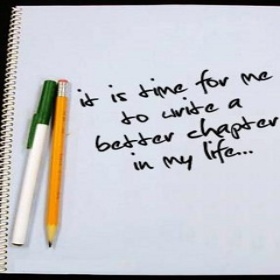 it is time for me
to write a
better chapter
in my life...